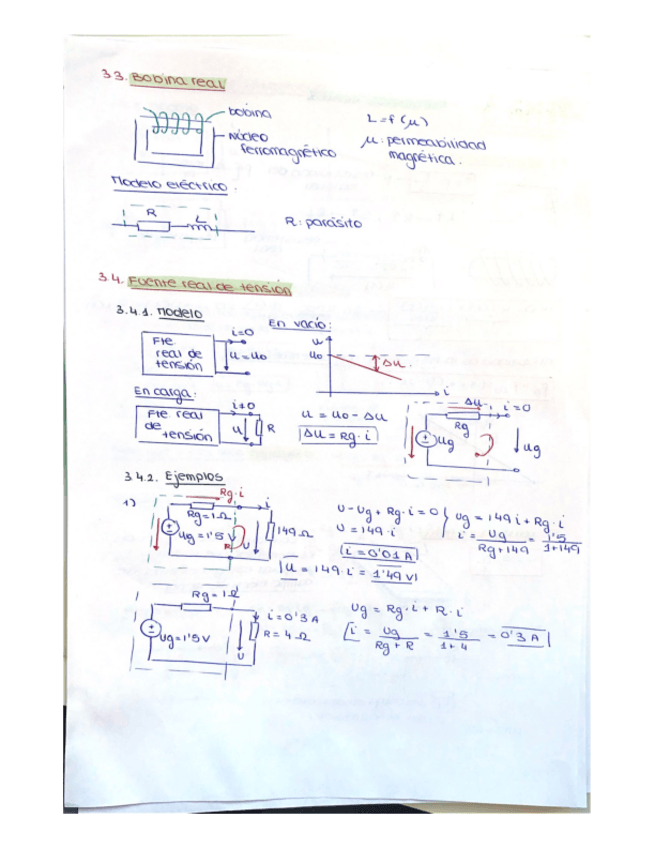 3.3. Bobina real
bobina
Núcleo
ferromagnético
L = f (μ)
μ: permeabilidad
magnética.
Modelo eléctrico.
R
L
R: parásito
3.4. Fuente real de tensión
3.4.1. Modelo
Fte
real de
tensión
i=0
u = u₀
En vacío:
u
u₀
Δu
i
En carga:
Fte real
de
tensión
i≠0
u
R
u = u₀ - Δu
Δu = Rg·i
Δu
i=0
Rg
ug
ug
3.4.2. Ejemplos
1)
Rg·i
i
Rg=1Ω
ug=1'5
u
149 Ω
U-Ug+Rg·i=0
U = 149·i
ug = 149i + Rg·i
i = Ug / (Rg+149) = 1'5 / (1+149)
i = 0'01 A
u = 149·i = 1'49 V
Rg = 1Ω
ug=1'5V
i=0'3A
R=4Ω
U
Ug = Rg·i + R·i
i = Ug / (Rg+R) = 1'5 / (1+4) = 0'3 A